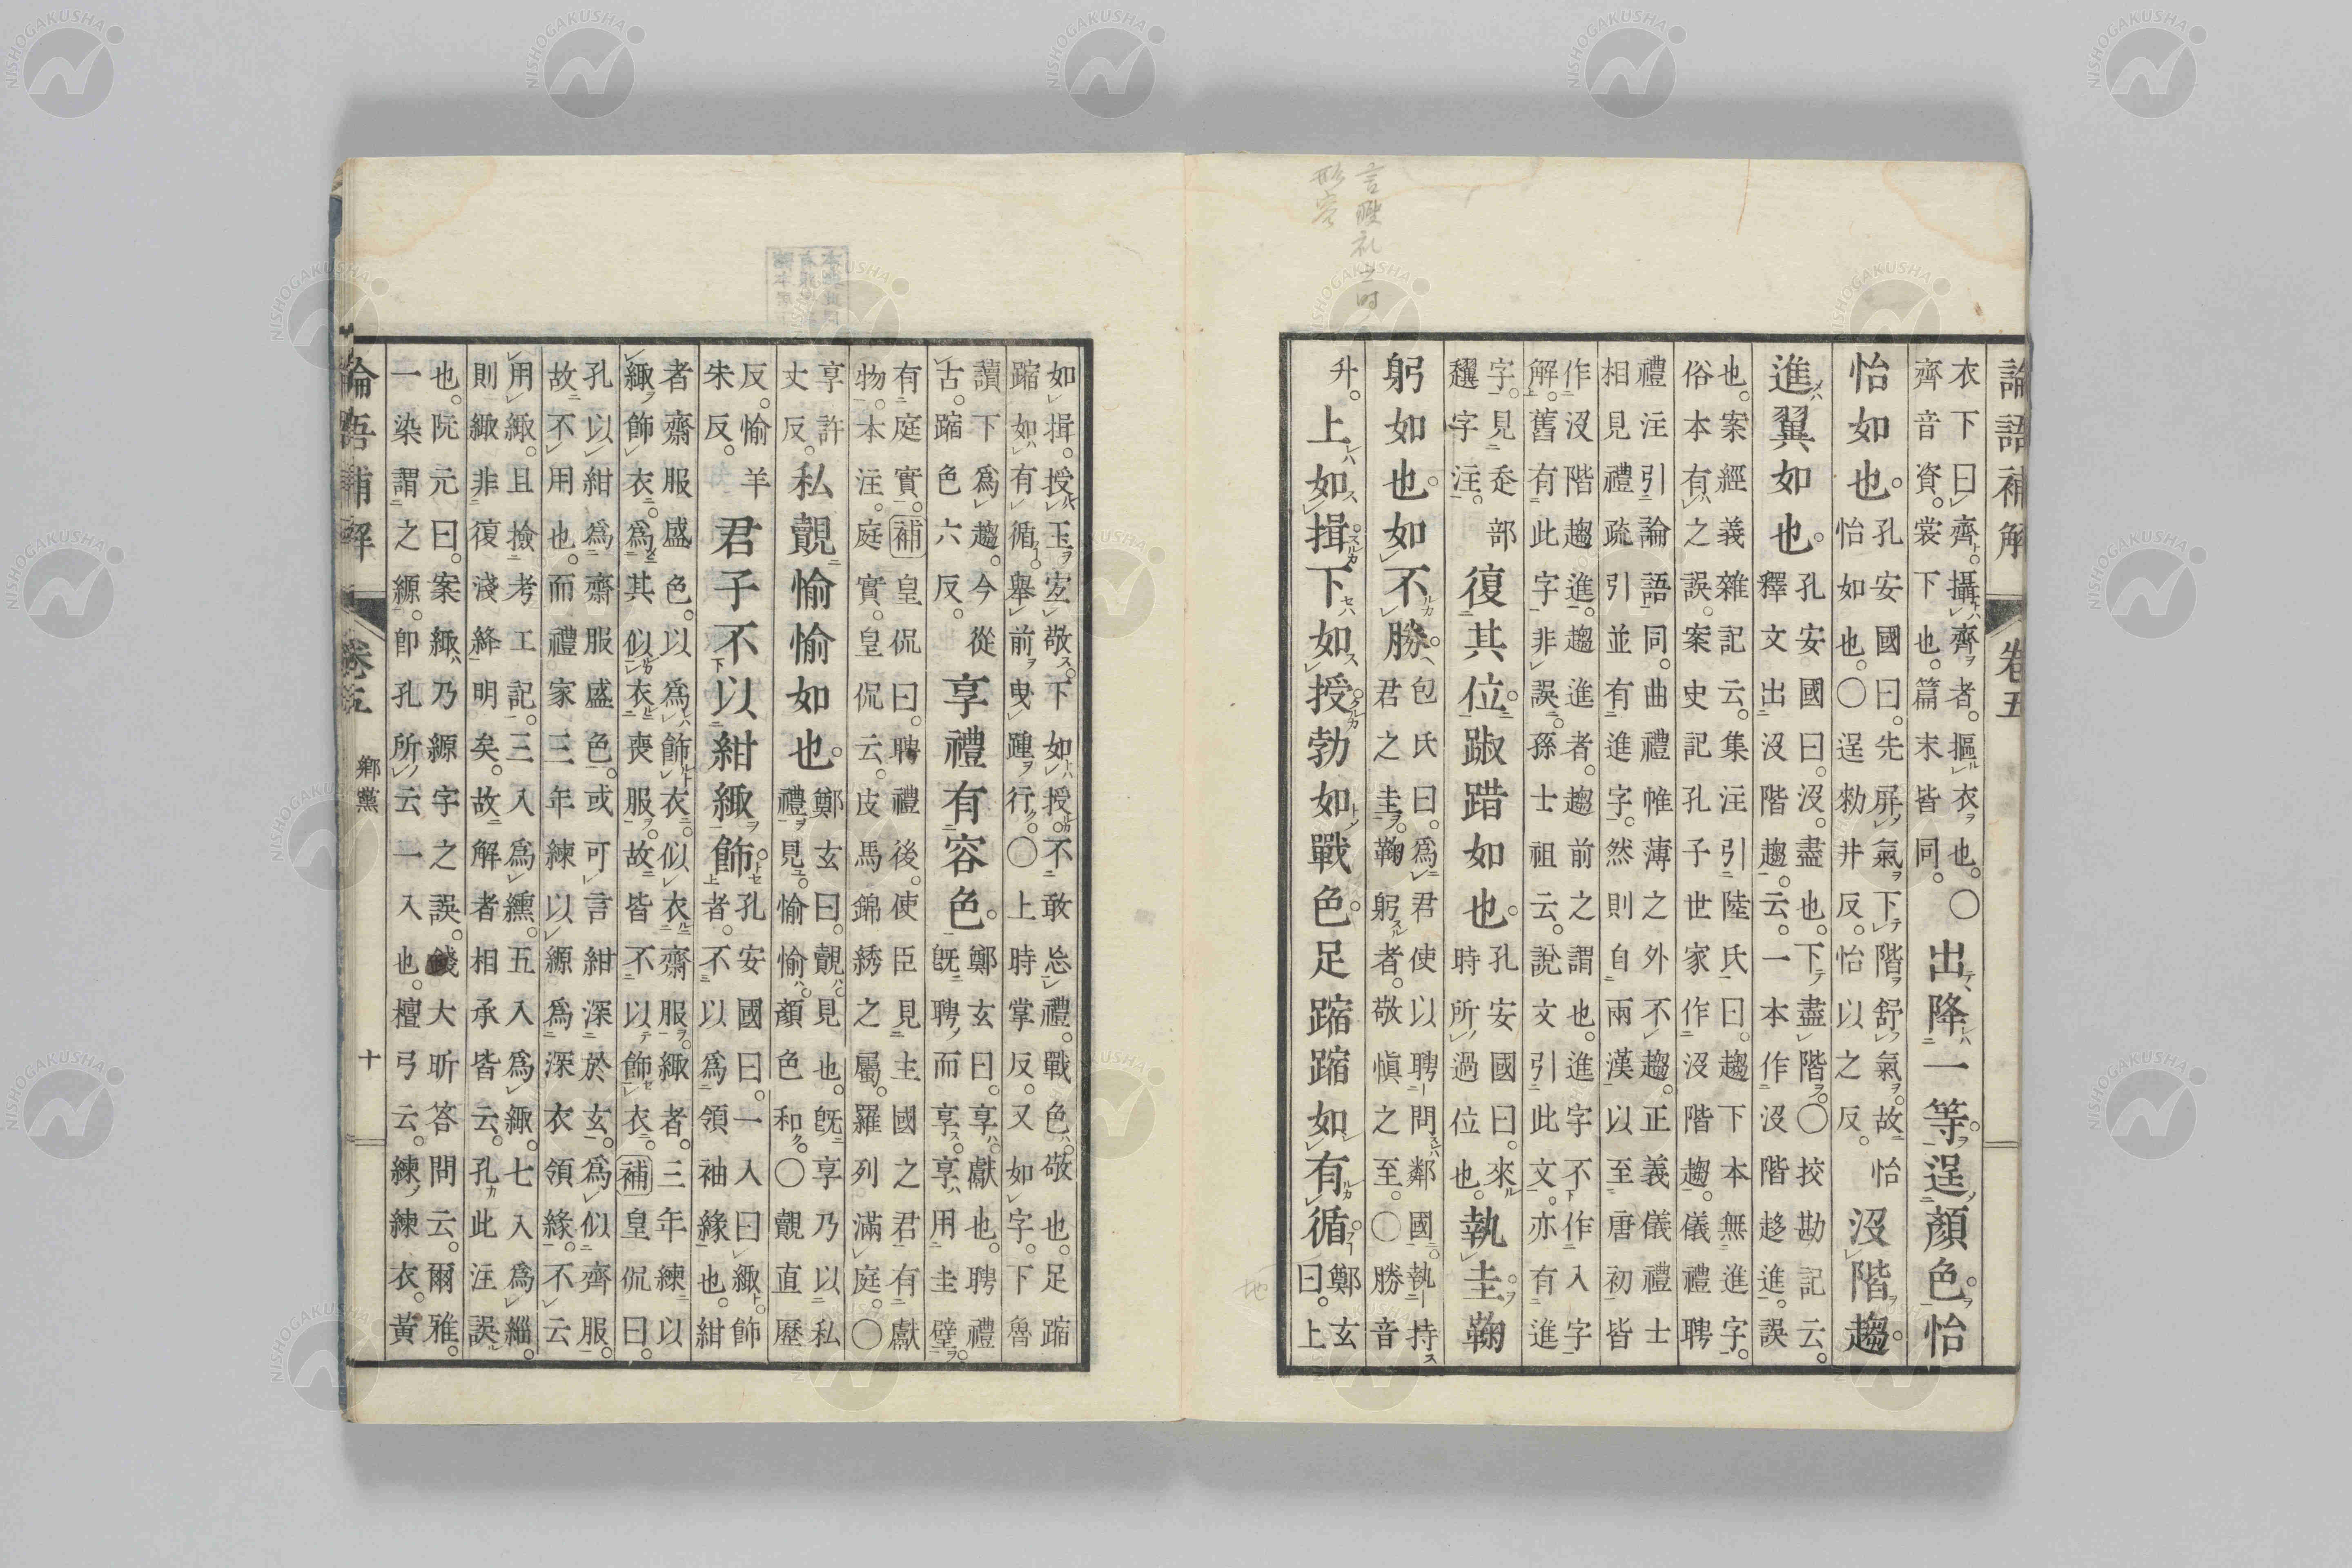 論語補解 卷五
衣下曰齊。攝齊者。摳衣也。〇
齊音資。裳下也。篇末皆同。
出降一等。逞顏色。怡
怡如也。
孔安國曰。先屏氣下階舒氣。故怡
怡如也。〇逞勑井反。怡以之反。
沒階趨
進翼如也。
孔安國曰。沒。盡也。下盡階。〇挍勘記云。
釋文出沒階趨。云。一本作沒階趍進。誤
也。案經義雜記云。集注引陸氏曰。趨下本無進字。
俗本有之誤。案史記孔子世家作沒階趨。儀禮聘
禮注引論語同。曲禮帷薄之外不趨。正義儀禮士
相見禮疏引並有進字。然則自兩漢以至唐初皆
作沒階趨進。趨進者。趨前之謂也。進字不作入字
解。舊有此字非誤。孫士祖云。說文引此文。亦有進
字。見辵部
趩字注。
復其位。踧踖如也。
孔安國曰。來
時所過位也。
執圭鞠
躬如也。如不勝。
包氏曰。爲君使以聘問鄰國。執持
君之圭。鞠躬者。敬愼之至。〇勝音
升。
上如揖。下如授勃如戰色。足蹜蹜如有循。
鄭玄
曰。上
如揖。授玉宐敬。下如授。不敢忘禮。戰色敬也。足蹜
蹜如有循。舉前曳踵行。〇上時掌反。又如字。下魯
讀下爲趨。今從
古。蹜色六反。
享禮有容色。
鄭玄曰。享獻也。聘禮
旣聘而享。享用圭璧。
有庭實。補皇侃曰。聘禮後。使臣見主國之君有獻
物。本注。庭實。皇侃云。皮馬錦綉之屬。羅列滿庭。〇
享許
丈反。
私覿愉愉如也。
鄭玄曰。覿見也。旣享乃以私
禮見。愉愉顏色和。〇覿直歷
反。愉羊
朱反。
君子不以紺緅飾。
孔安國曰。一入曰緅。飾
者。不以爲領袖緣也。紺
者齋服盛色。以爲飾衣。似衣齋服。緅者。三年練以
緅飾衣。爲其似衣喪服。故皆不以飾衣。補皇侃曰。
孔以紺爲齋服盛色。或可言紺深於玄。爲似齊服。
故不用也。而禮家三年練以縓爲深衣領緣。不云
用緅。且撿考工記。三入爲纁。五入爲緅。七入爲緇。
則緅非復淺絳明矣。故解者相承皆云。孔此注誤
也。阮元曰。案緅乃縓字之誤。錢大昕答問云。爾雅。
一染謂之縓。卽孔所云一入也。檀弓云。練練衣。黃
論語補解 卷五 鄉黨 十